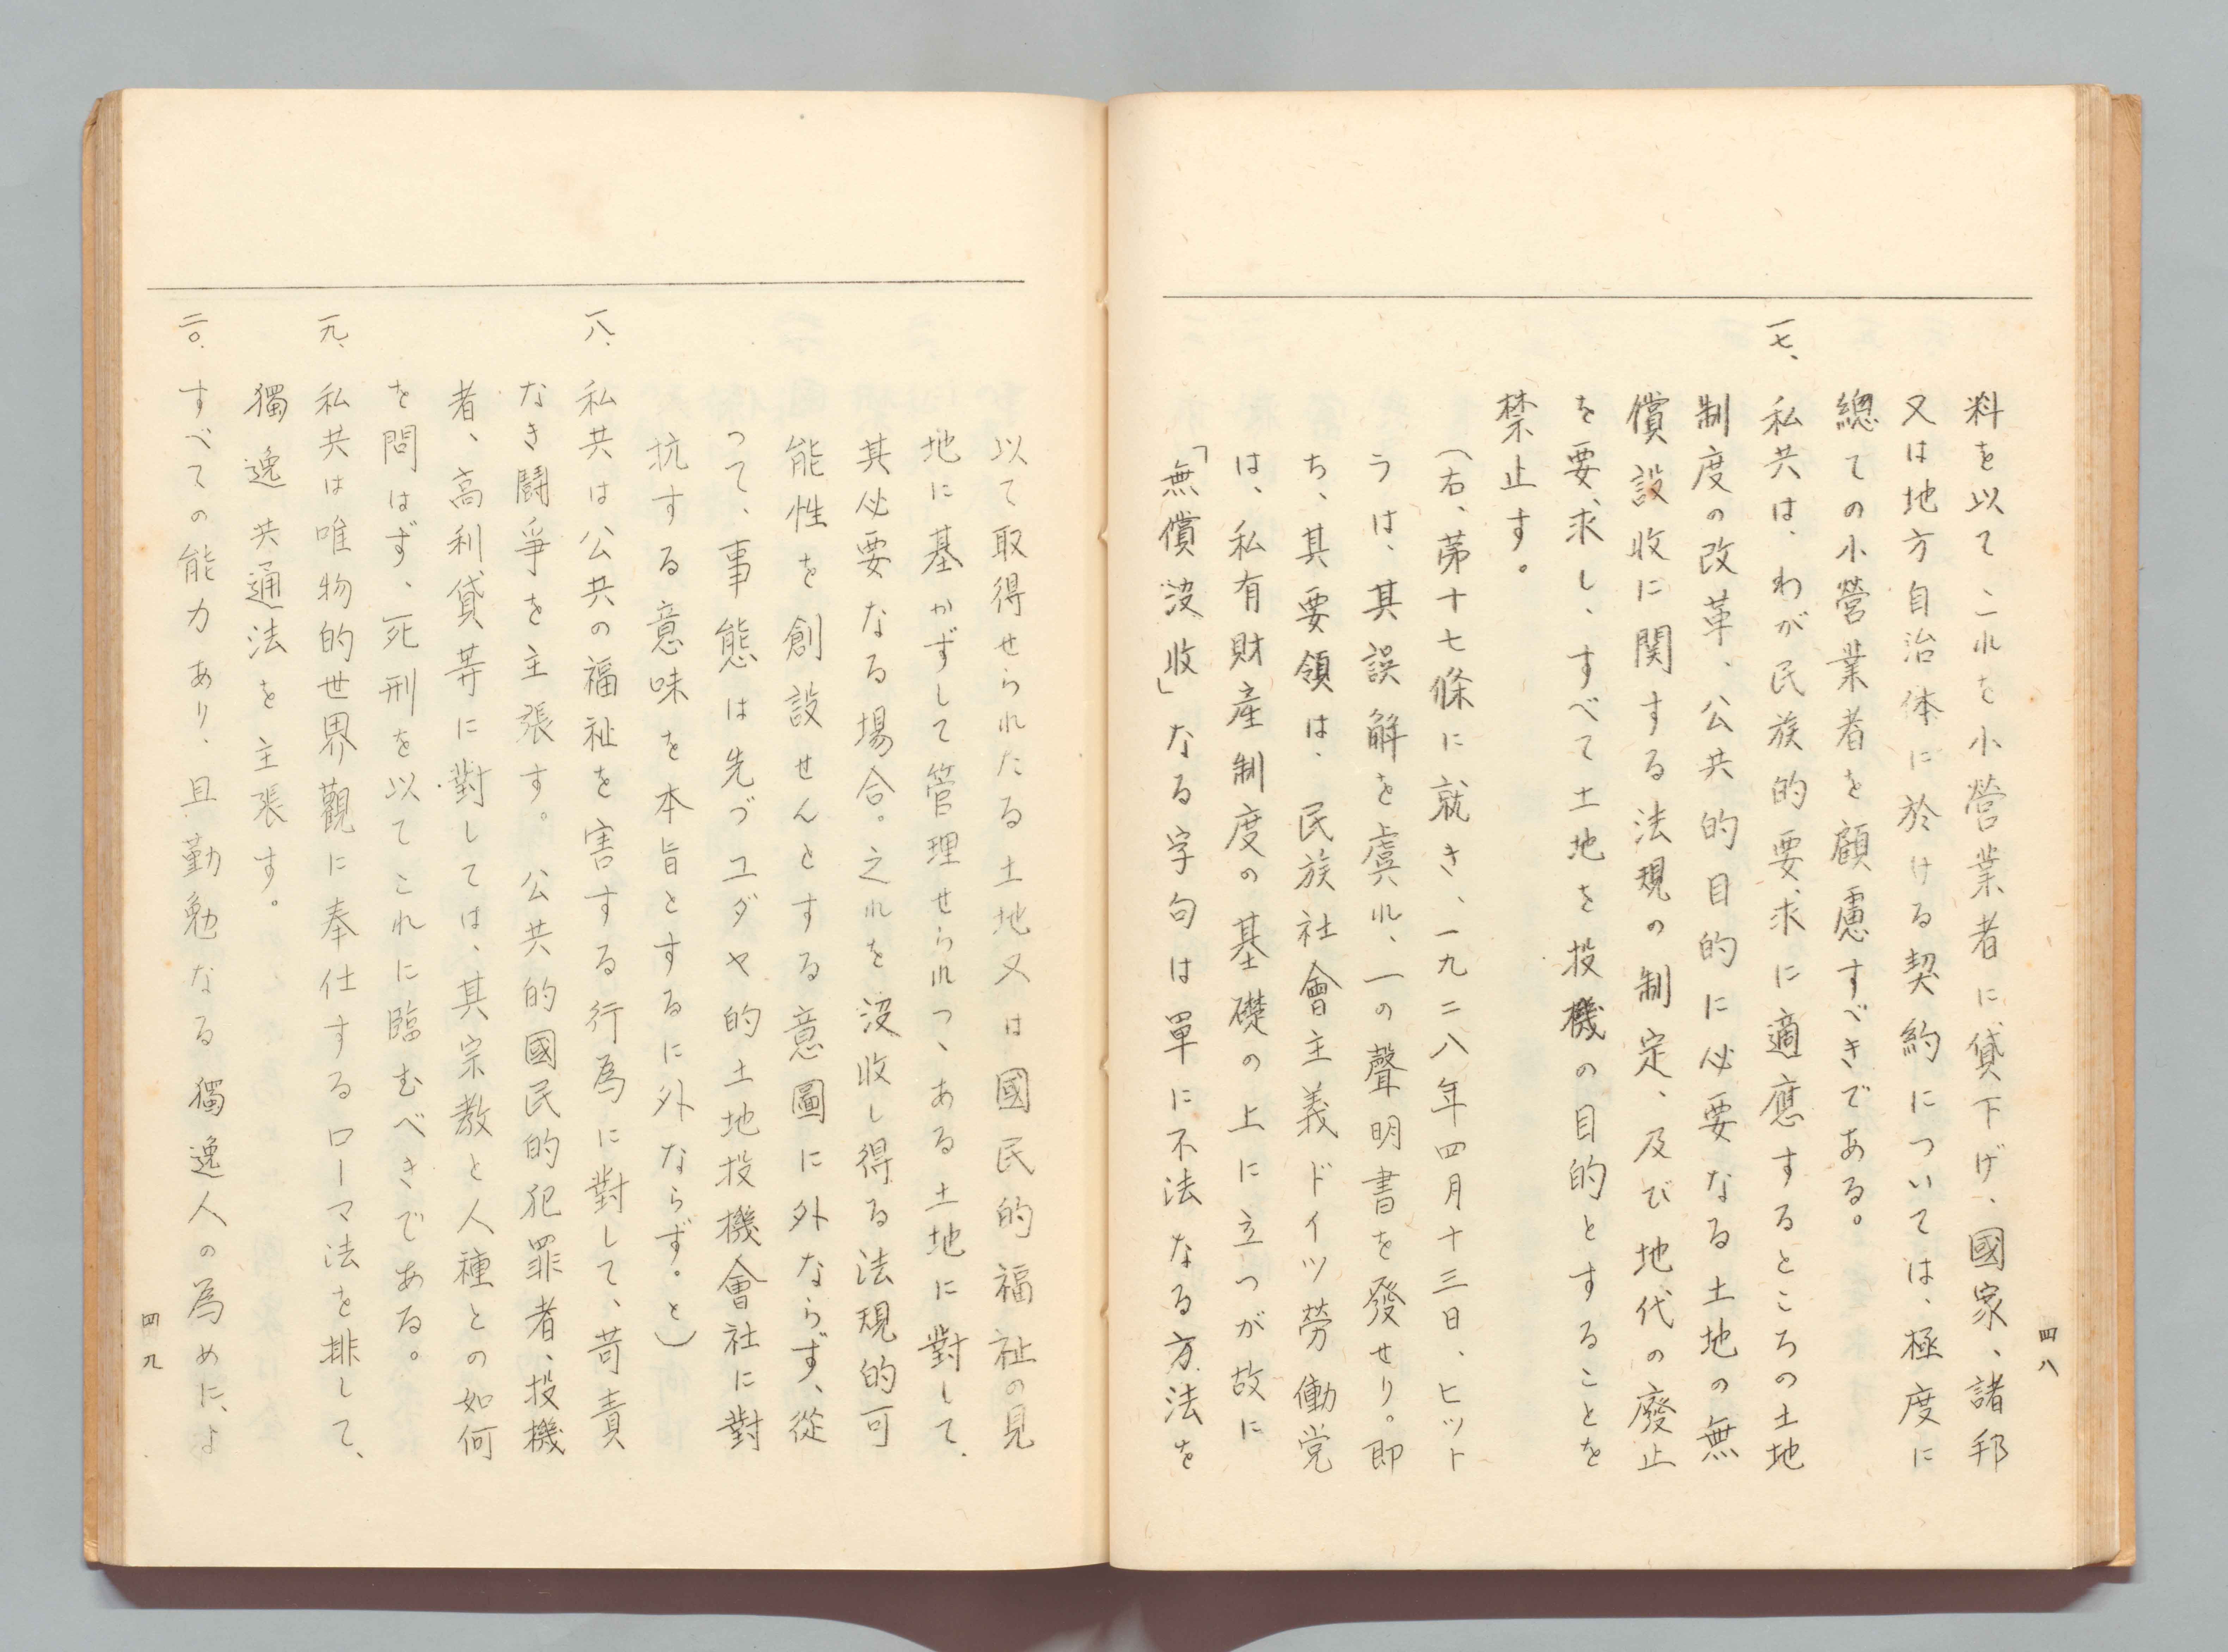 料を以てこれを小營業者に貸下げ、國家、諸邦
又は地方自治体に於ける契約については、極度に
總ての小營業者を顧慮すべきである。
一七、私共は、わが民族的要求に適應するところの土地
制度の改革、公共的目的に必要なる土地の無
償設收に関する法規の制定、及び地代の廢止
を要求し、すべて土地を投機の目的とすることを
禁止す。
(右、第十七條に就き、一九二八年四月十三日、ヒット
ラは、其誤解を虞れ、一の聲明書を發せり。即
ち、其要領は、民族社會主義ドイツ勞働党
は、私有財産制度の基礎の上に立つが故に
「無償沒收」なる字句は單に不法なる方法を
四八
以て取得せられたる土地又は國民的福祉の見
地に基かずして管理せられつゝある土地に對して、
其必要なる場合。之れを沒收し得る法規的可
能性を創設せんとする意圖に外ならず、從
つて、事態は先づユダヤ的土地投機會社に對
抗する意味を本旨とするに外ならず。と)
一八、私共は公共の福祉を害する行為に對して、苛責
なき鬪爭を主張す。公共的國民的犯罪者、投機
者、高利貸等に對しては、其宗教と人種との如何
を問はず、死刑を以てこれに臨むべきである。
一九、私共は唯物的世界觀に奉仕するローマ法を排して、
獨逸共通法を主張す。
二〇、すべての能力あり、且勤勉なる獨逸人の為めに、よ
四九